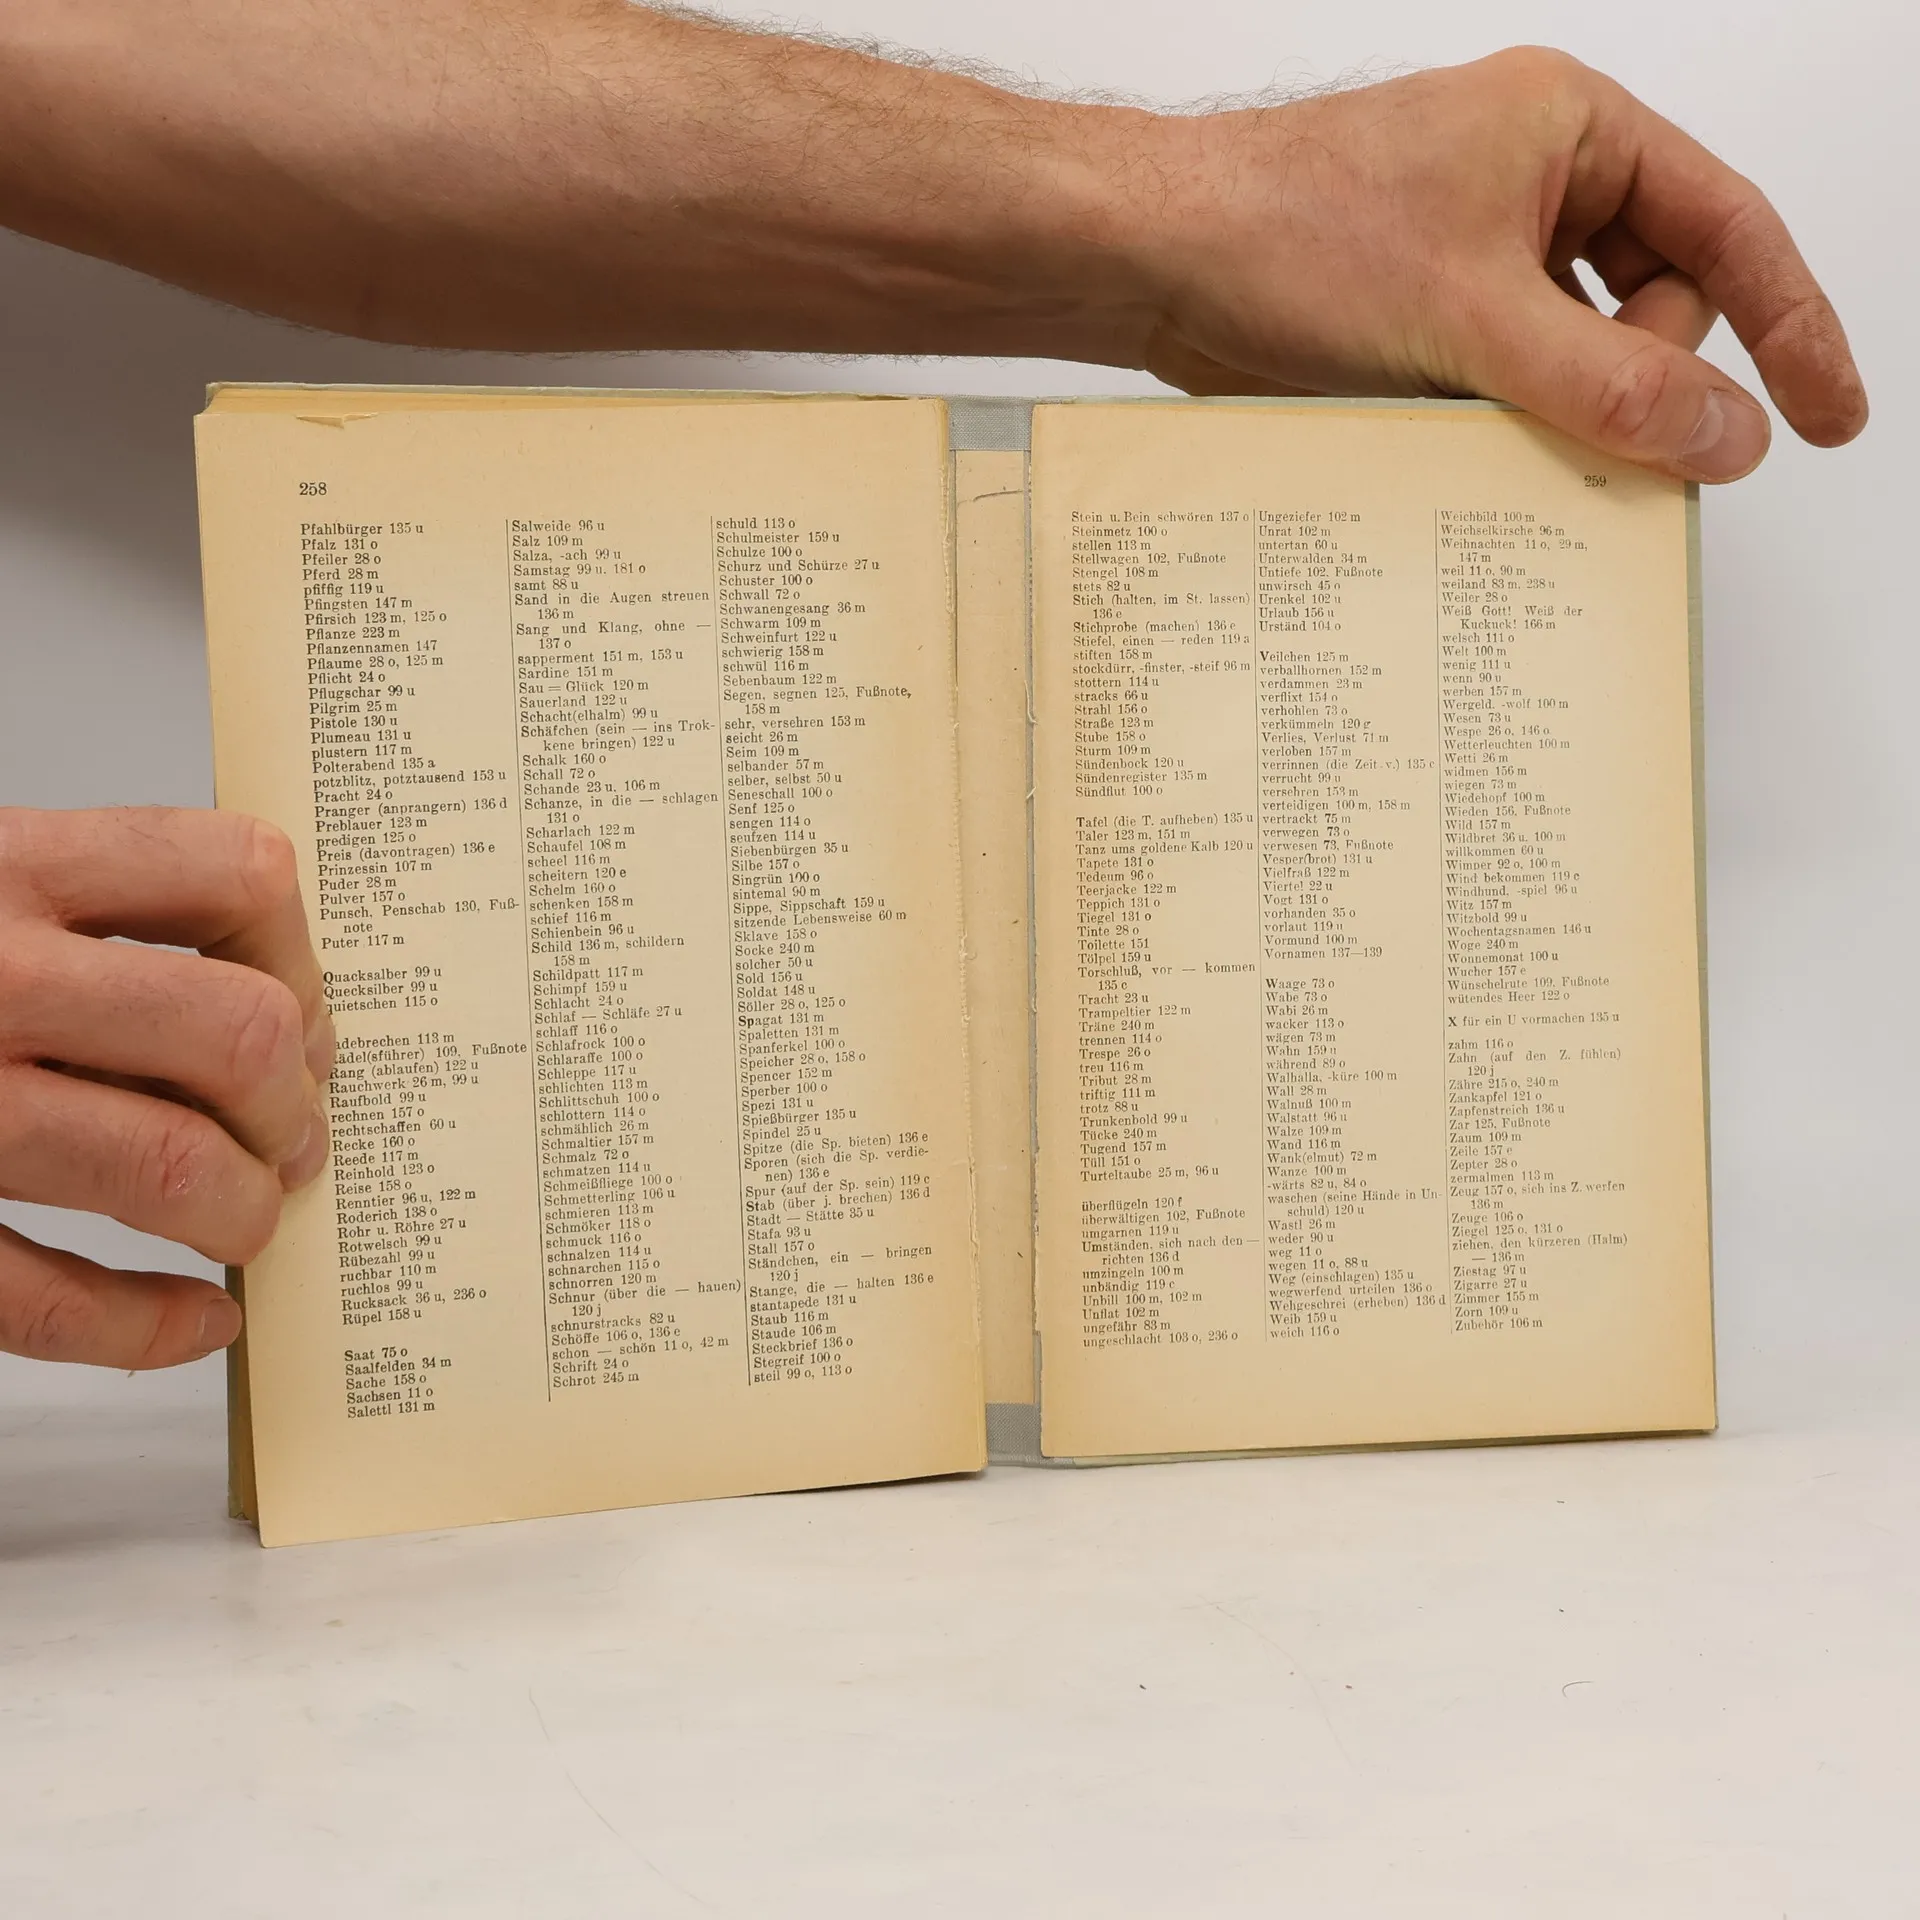 258
Pfahlbürger 135 u
Pfalz 131 o
Pfeiler 28 o
Pferd 28 m
pfiffig 119 u
Pfingsten 147 m
Pfirsich 123 m, 125 o
Pflanze 223 m
Pflanzennamen 147
Pflaume 28 o, 125 m
Pflicht 24 o
Pflugschar 99 u
Pilgrim 25 m
Pistole 130 u
Plumeau 131 u
plustern 117 m
Polterabend 135 a
potzblitz, potztausend 153 u
Pracht 24 o
Pranger (anprangern) 136 d
Preblauer 123 m
predigen 125 o
Preis (davontragen) 136 e
Prinzessin 107 m
Puder 28 m
Pulver 157 o
Punsch, Penschab 130, Fuß-
note
Puter 117 m
Quacksalber 99 u
Quecksilber 99 u
quietschen 115 o
adebrechen 113 m
ädel(sführer) 109, Fußnote
Rang (ablaufen) 122 u
Rauchwerk 26 m, 99 u
Raufbold 99 u
rechnen 157 o
rechtschaffen 60 u
Recke 160 o
Reede 117 m
Reinhold 123 o
Reise 158 o
Renntier 96 u, 122 m
Roderich 138 o
Rohr u. Röhre 27 u
Rotwelsch 99 u
Rübezahl 99 u
ruchbar 110 m
ruchlos 99 u
Rucksack 36 u, 236 o
Rüpel 158 u
Saat 75 o
Saalfelden 34 m
Sache 158 o
Sachsen 11 o
Salettl 131 m
Salweide 96 u
Salz 109 m
Salza, -ach 99 u
Samstag 99 u. 181 o
samt 88 u
Sand in die Augen streuen
136 m
Sang und Klang, ohne —
137 o
sapperment 151 m, 153 u
Sardine 151 m
Sau = Glück 120 m
Sauerland 122 u
Schacht(elhalm) 99 u
Schäfchen (sein — ins Trok-
kene bringen) 122 u
Schalk 160 o
Schall 72 o
Schande 23 u. 106 m
Schanze, in die — schlagen
131 o
Scharlach 122 m
Schaufel 108 m
scheel 116 m
scheitern 120 e
Schelm 160 o
schenken 158 m
schief 116 m
Schienbein 96 u
Schild 136 m, schildern
158 m
Schildpatt 117 m
Schimpf 159 u
Schlacht 24 o
Schlaf — Schläfe 27 u
schlaff 116 o
Schlafrock 100 o
Schlaraffe 100 o
Schleppe 117 u
schlichten 113 m
Schlittschuh 100 o
schlottern 114 o
schmählich 26 m
Schmaltier 157 m
Schmalz 72 o
schmatzen 114 u
Schmeißfliege 100 o
Schmetterling 106 u
schmieren 113 m
Schmöker 118 o
schmuck 116 o
schnalzen 114 u
schnarchen 115 o
schnorren 120 m
Schnur (über die — hauen)
120 j
schnurstracks 82 u
Schöffe 106 o, 136 e
schon — schön 11 o, 42 m
Schrift 24 o
Schrot 245 m
schuld 113 o
Schulmeister 159 u
Schulze 100 o
Schurz und Schürze 27 u
Schuster 100 o
Schwall 72 o
Schwanengesang 36 m
Schwarm 109 m
Schweinfurt 122 u
schwierig 158 m
schwül 116 m
Sebenbaum 122 m
Segen, segnen 125, Fußnote,
158 m
sehr, versehren 153 m
seicht 26 m
Seim 109 m
selbander 57 m
selber, selbst 50 u
Seneschall 100 o
Senf 125 o
sengen 114 o
seufzen 114 u
Siebenbürgen 35 u
Silbe 157 o
Singrün 100 o
sintemal 90 m
Sippe, Sippschaft 159 u
sitzende Lebensweise 60 m
Sklave 158 o
Socke 240 m
solcher 50 u
Sold 156 u
Soldat 148 u
Söller 28 o, 125 o
Spagat 131 m
Spaletten 131 m
Spanferkel 100 o
Speicher 28 o, 158 o
Spencer 152 m
Sperber 100 o
Spezi 131 u
Spießbürger 135 u
Spindel 25 u
Spitze (die Sp. bieten) 136 e
Sporen (sich die Sp. verdie-
nen) 136 e
Spur (auf der Sp. sein) 119 c
Stab (über j. brechen) 136 d
Stadt — Stätte 35 u
Stafa 93 u
Stall 157 o
Ständchen, ein — bringen
120 j
Stange, die — halten 136 e
stantapede 131 u
Staub 116 m
Staude 106 m
Steckbrief 136 o
Stegreif 100 o
steil 99 o, 113 o
259
Stein u. Bein schwören 137 o
Steinmetz 100 o
stellen 113 m
Stellwagen 102, Fußnote
Stengel 108 m
stets 82 u
Stich (halten, im St. lassen)
136 e
Stichprobe (machen) 136 e
Stiefel, einen — reden 119 a
stiften 158 m
stockdürr, -finster, -steif 96 m
stottern 114 u
stracks 66 u
Strahl 156 o
Straße 123 m
Stube 158 o
Sturm 109 m
Sündenbock 120 u
Sündenregister 135 m
Sündflut 100 o
Tafel (die T. aufheben) 135 u
Taler 123 m, 151 m
Tanz ums goldene Kalb 120 u
Tapete 131 o
Tedeum 96 o
Teerjacke 122 m
Teppich 131 o
Tiegel 131 o
Tinte 28 o
Toilette 151
Tölpel 159 u
Torschluß, vor — kommen
135 c
Tracht 23 u
Trampeltier 122 m
Träne 240 m
trennen 114 o
Trespe 26 o
treu 116 m
Tribut 28 m
triftig 111 m
trotz 88 u
Trunkenbold 99 u
Tücke 240 m
Tugend 157 m
Tüll 151 o
Turteltaube 25 m, 96 u
überflügeln 120 f
überwältigen 102, Fußnote
umgarnen 119 u
Umständen, sich nach den —
richten 136 d
umzingeln 100 m
unbändig 119 c
Unbill 100 m, 102 m
Unflat 102 m
ungefähr 83 m
ungeschlacht 103 o, 236 o
Ungeziefer 102 m
Unrat 102 m
untertan 60 u
Unterwalden 34 m
Untiefe 102, Fußnote
unwirsch 45 o
Urenkel 102 u
Urlaub 156 u
Urständ 104 o
Veilchen 125 m
verballhornen 152 m
verdammen 23 m
verflixt 154 o
verhohlen 73 o
verkümmeln 120 g
Verlies, Verlust 71 m
verloben 157 m
verrinnen (die Zeit v.) 135 c
verrucht 99 u
versehren 153 m
verteidigen 100 m, 158 m
vertrackt 75 m
verwegen 73 o
verwesen 73, Fußnote
Vesper(brot) 131 u
Vielfraß 122 m
Viertel 22 u
Vogt 131 o
vorhanden 35 o
vorlaut 119 u
Vormund 100 m
Vornamen 137—139
Waage 73 o
Wabe 73 o
Wabi 26 m
wacker 113 o
wägen 73 m
Wahn 159 u
während 89 o
Walhalla, -küre 100 m
Wall 28 m
Walnuß 100 m
Walstatt 96 u
Walze 109 m
Wand 116 m
Wank(elmut) 72 m
Wanze 100 m
-wärts 82 u, 84 o
waschen (seine Hände in Un-
schuld) 120 u
Wastl 26 m
weder 90 u
weg 11 o
wegen 11 o, 88 u
Weg (einschlagen) 135 u
wegwerfend urteilen 136 o
Wehgeschrei (erheben) 136 d
Weib 159 u
weich 116 o
Weichbild 100 m
Weichselkirsche 96 m
Weihnachten 11 o, 29 m,
147 m
weil 11 o, 90 m
weiland 83 m, 238 u
Weiler 28 o
Weiß Gott! Weiß der
Kuckuck! 166 m
welsch 111 o
Welt 100 m
wenig 111 u
wenn 90 u
werben 157 m
Wergeld, -wolf 100 m
Wesen 73 u
Wespe 26 o, 146 o
Wetterleuchten 100 m
Wetti 26 m
widmen 156 m
wiegen 73 m
Wiedehopf 100 m
Wieden 156, Fußnote
Wild 157 m
Wildbret 36 u, 100 m
willkommen 60 u
Wimper 92 o, 100 m
Wind bekommen 119 c
Windhund, -spiel 96 u
Witz 157 m
Witzbold 99 u
Wochentagsnamen 146 u
Woge 240 m
Wonnemonat 100 u
Wucher 157 e
Wünschelrute 109, Fußnote
wütendes Heer 122 o
X für ein U vormachen 135 u
zahm 116 o
Zahn (auf den Z. fühlen)
120 j
Zähre 215 o, 240 m
Zankapfel 121 o
Zapfenstreich 136 u
Zar 125, Fußnote
Zaum 109 m
Zeile 157 e
Zepter 28 o
zermalmen 113 m
Zeug 157 o, sich ins Z. werfen
136 m
Zeuge 106 o
Ziegel 125 o, 131 o
ziehen, den kürzeren (Halm)
— 136 m
Ziestag 97 u
Zigarre 27 u
Zimmer 155 m
Zorn 109 u
Zubehör 106 m